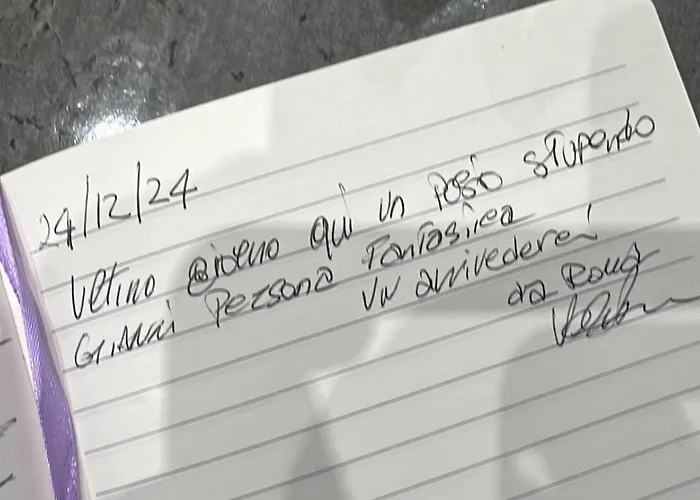 24/12/24
Ultimo giorno qui un posto stupendo
Persona Fantastica
un arrivederci
da